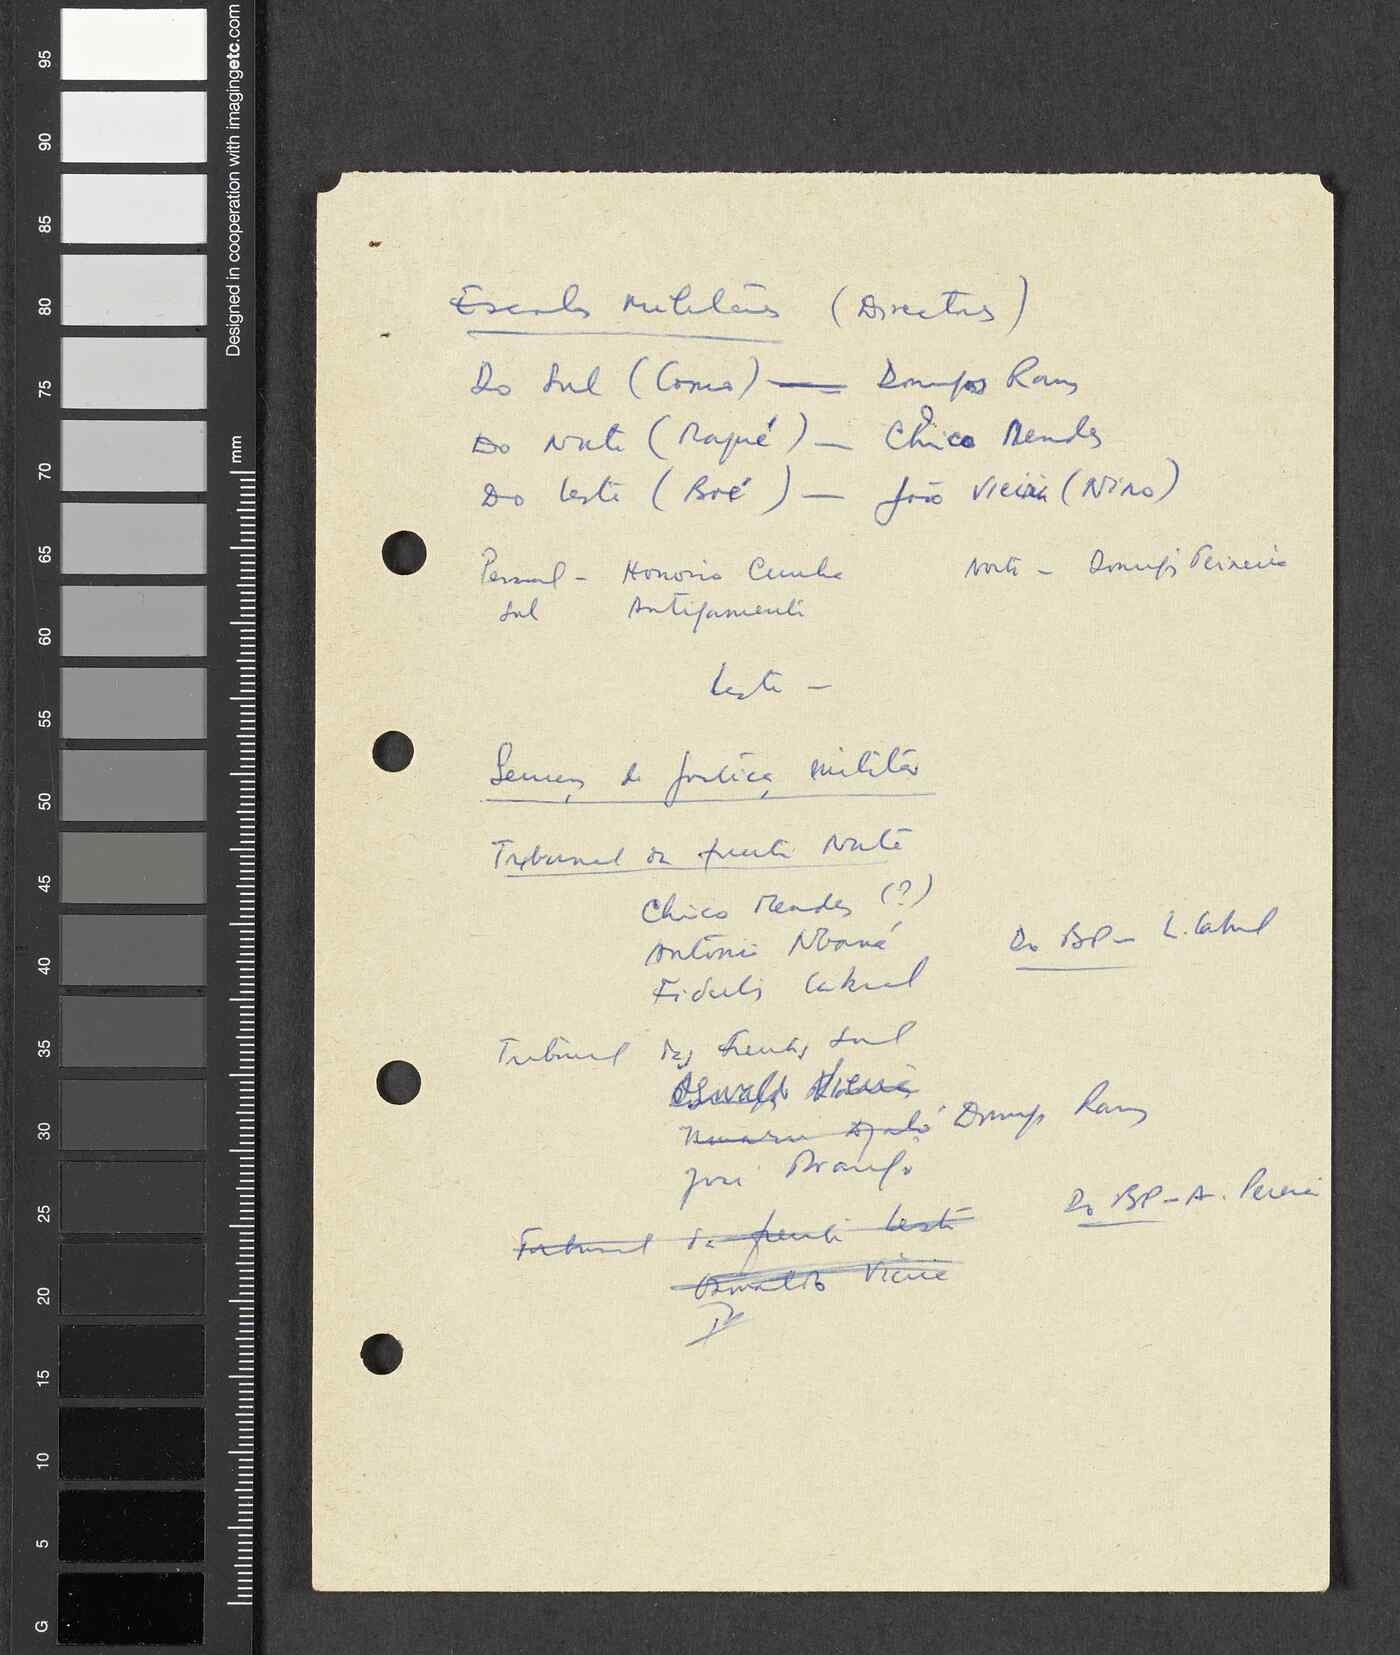 Escolas Militares (Directores)
Do Sul (Como) — Domingos Ramos
Do Norte (Maqué) — Chico Mendes
Do Leste (Boé) — João Vieira (Nino)
Pessoal - Honorio Cunha
Norte - Domingos Teixeira
Sul Antigamente
Leste -
Serviços de Justiça Militar
Tribunal da frente Norte
Chico Mendes (?)
António Mbaná
Do BP - L. Cabral
Fidelis Cabral
Tribunal das frentes Sul
Osvaldo Vieira
Domingos Ramos
José Araujo
Do BP - A. Pereira
Tribunal da frente Leste
Osvaldo Vieira
95
90
85
80
75
70
65
60
55
50
45
40
35
30
25
20
15
10
5
G
mm
Designed in cooperation with imagingetc.com